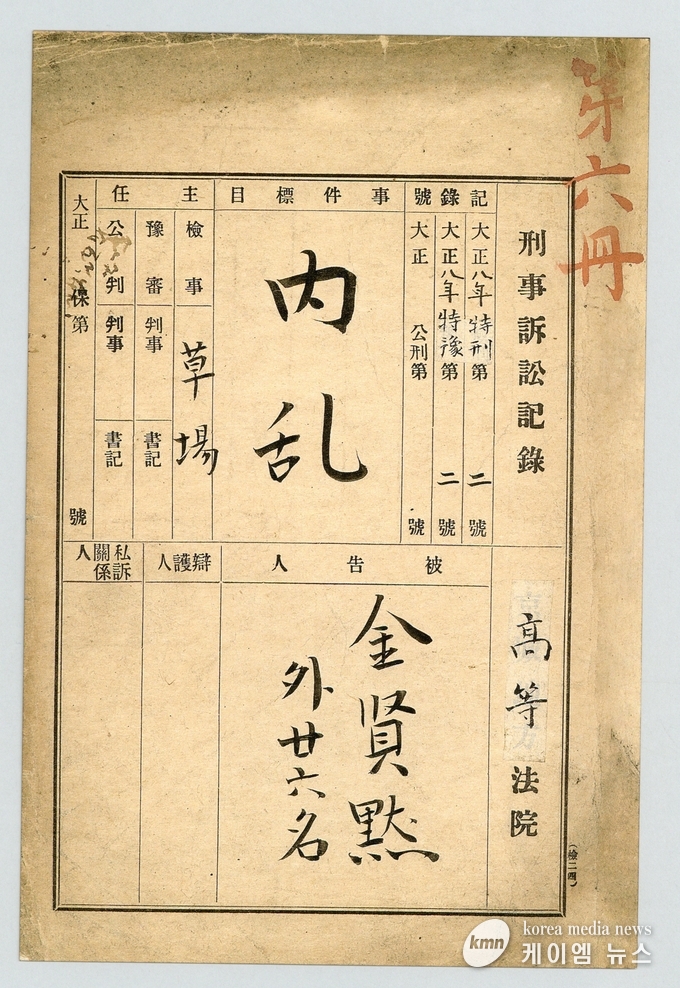 第六冊
刑事訴訟記錄
高等法院
記錄號
大正八年特刑第二號
大正八年特豫第二號
大正 公刑第 號
事件標目
內乱
主任
檢事 草場
豫審判事 書記
公判判事 書記
大正 保第 號
被告人
金賢黙
外廿六名
辯護人
私訴關係人
(檢二四)
kmn
korea media news
케이엠 뉴스